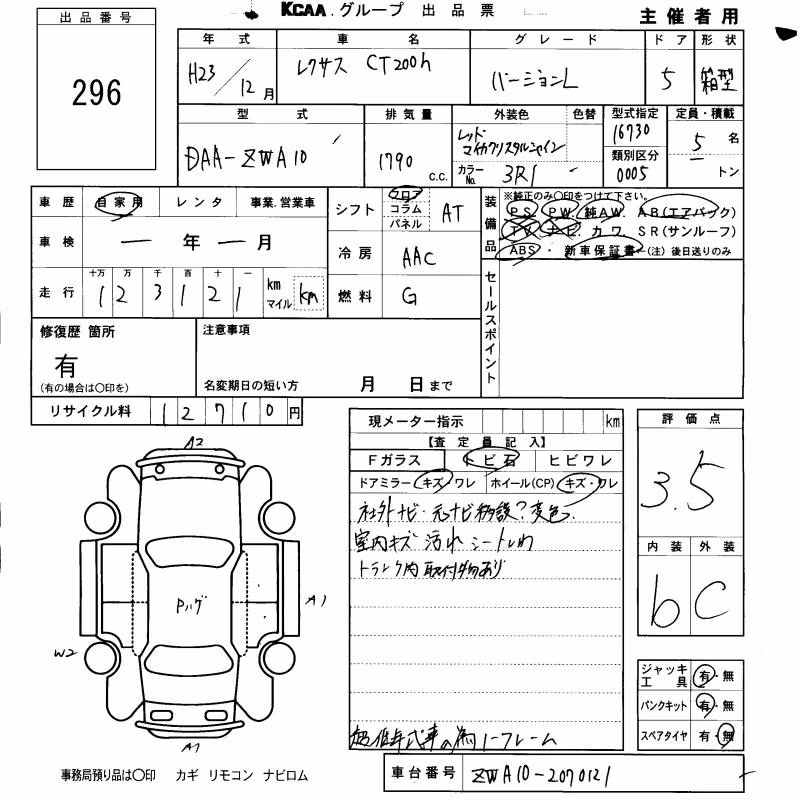 KCAA.グループ 出品票
主催者用
出品番号
296
年式 車名 グレード ドア 形状
H23/12月 レクサス CT200h バージョンL 5 箱型
型式 排気量 外装色 色替 型式指定 定員・積載
DAA-ZWA10 1790 c.c. レッド マイカクリスタルシャイン 16730 5名
カラーNo. 3R1 - 類別区分 0005 - トン
車歴 自家用 レンタ 事業.営業車
車検 ー年ー月
走行 十万 万 千 百 十 一
1 2 3 1 2 1 km マイル km
シフト フロア コラム パネル AT
冷房 AAC
燃料 G
装備品
※純正のみ〇印をつけて下さい。
PS. PW. 純AW. AB(エアバック)
TV ナビ. カワ. SR(サンルーフ)
ABS・新車保証書←(注)後日送りのみ
セールスポイント
修復歴 箇所
有
(有の場合は〇印を)
注意事項
名変期日の短い方 月 日まで
リサイクル料 12710円
現メーター指示 km
【査定員記入】
Fガラス トビ石 ヒビワレ
ドアミラー キズ・ワレ ホイール(CP) キズ・ワレ
社外ナビ・元ナビ移設?変色.
室内キズ 汚れ シートしわ
トランク内 取付物あり
低年式車の為ノークレーム
評価点
3.5
内装 外装
b C
ジャッキ工具 有・無
パンクキット 有・無
スペアタイヤ 有・無
A2
A1
Pハゲ
W2
A1
事務局預り品は〇印 カギ リモコン ナビロム
車台番号 ZWA10-2070121